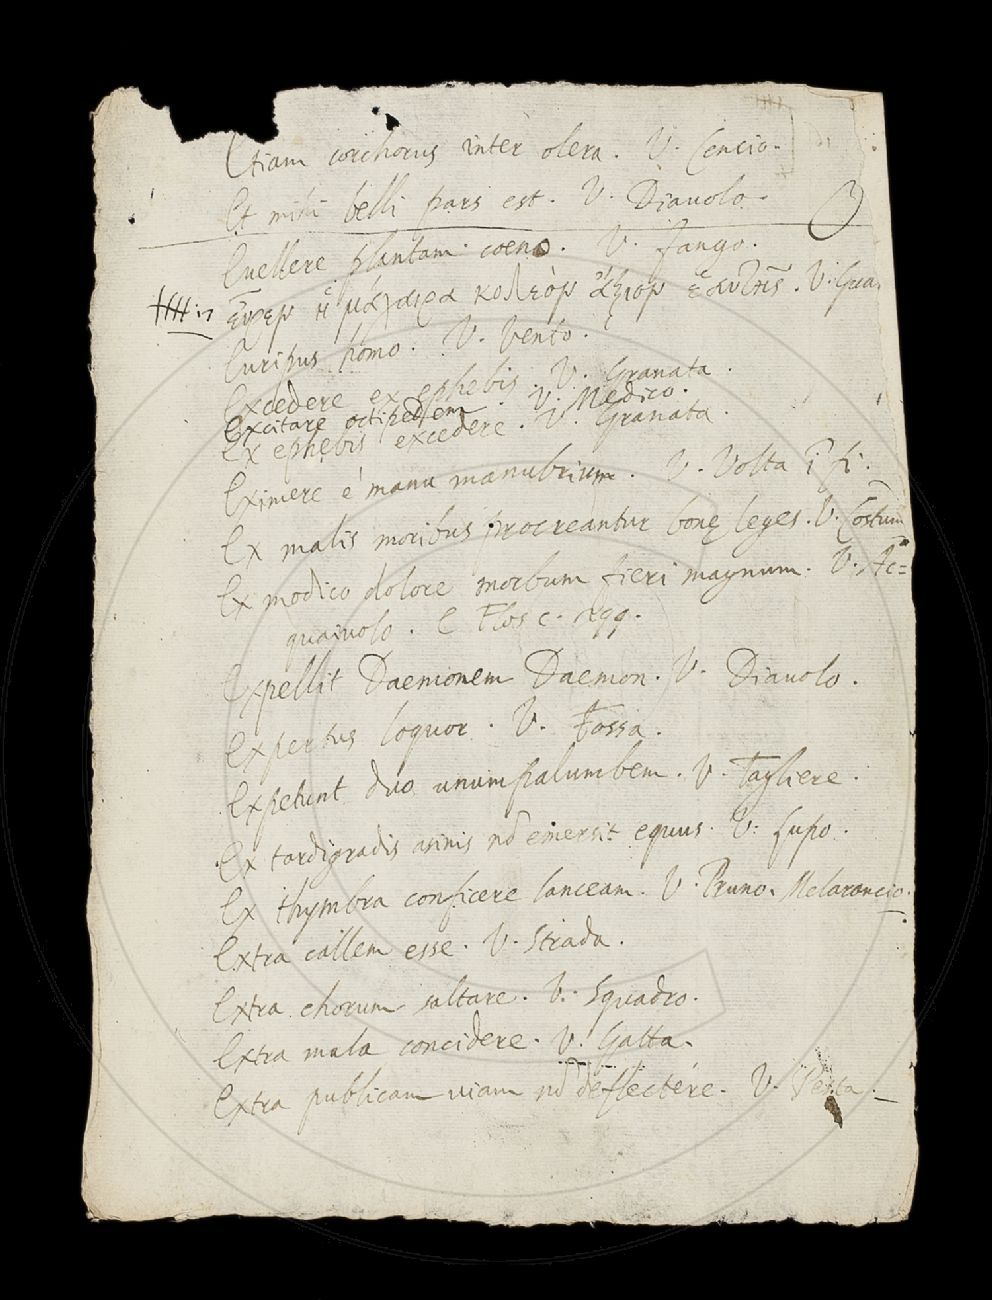 Etiam corchorus inter olera. V. Cencio.
Et mihi belli pars est. V. Diauolo.
Euellere plantam coeno. V. fango.
εὗρεν ἡ μάχαιρα κολεὸν ἄξιον ἑαυτῆς. V. Gua
Euripus homo. V. Vento.
Excedere ex ephebis. V. Granata.
Excitare octipedem V. Medico.
Ex ephebis excedere. V. Granata.
Eximere é manu manubrium. V. Volta ĩ fi.
Ex malis moribus procreantur bonę leges. V. Costum
Ex modico dolore morbum fieri magnum. V. Ac=
quaiuolo. E Flos c.
Expellit Daemonem Daemon. V. Diauolo.
Expertus loquor. V. Fossa.
Expetunt duo unum palumbem. V. Tagliere.
Ex tardigradis asinis nõ emersit equus. V. Lupo.
Ex thymbra conficere lanceam. V. Pruno. Melarancio.
Extra callem esse. V. Strada.
Extra chorum saltare. V. Squadro.
Extra mala concidere. V. Gatta.
Extra publicam uiam nõ deflectére. V. Pesta.